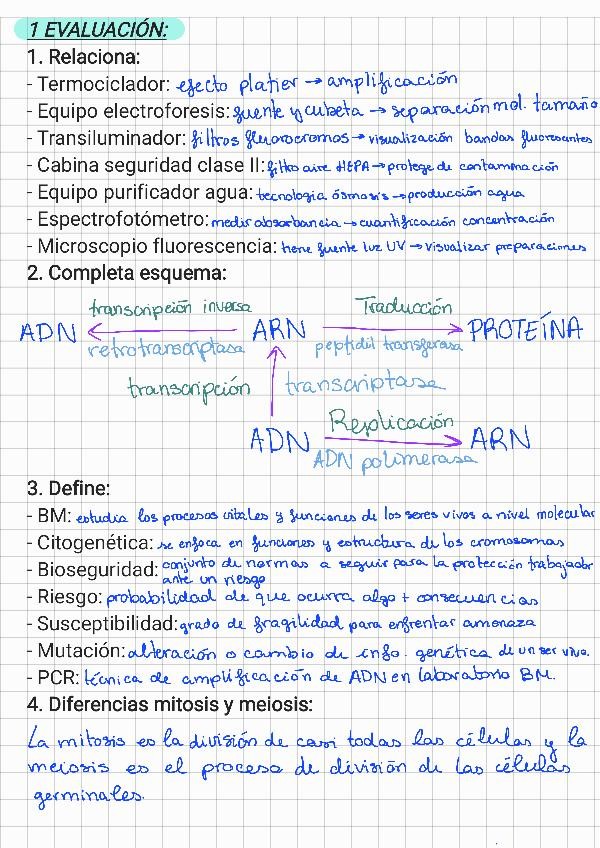 1 EVALUACIÓN:
1. Relaciona:
- Termociclador: efecto platier → amplificación
- Equipo electroforesis: fuente y cubeta → separación mol. tamaño
- Transiluminador: filtros fluorocromos → visualización bandas fluorescentes
- Cabina seguridad clase II: filtro aire HEPA → protege de contaminación
- Equipo purificador agua: tecnología ósmosis → producción agua
- Espectrofotómetro: medir absorbancia → cuantificación concentración
- Microscopio fluorescencia: tiene fuente luz UV → visualizar preparaciones
2. Completa esquema:
transcripción inversa Traducción
ADN ← ARN → PROTEÍNA
retrotranscriptasa peptidil transferasa
transcripción transcriptasa
Replicación
ADN → ARN
ADN polimerasa
3. Define:
- BM: estudia los procesos vitales y funciones de los seres vivos a nivel molecular
- Citogenética: se enfoca en funciones y estructura de los cromosomas
- Bioseguridad: conjunto de normas a seguir para la protección trabajador
ante un riesgo
- Riesgo: probabilidad de que ocurra algo + consecuencias
- Susceptibilidad: grado de fragilidad para enfrentar amenaza
- Mutación: alteración o cambio de info. genética de un ser vivo.
- PCR: técnica de amplificación de ADN en laboratorio BM.
4. Diferencias mitosis y meiosis:
La mitosis es la división de casi todas las células y la
meiosis es el proceso de división de las células
germinales.